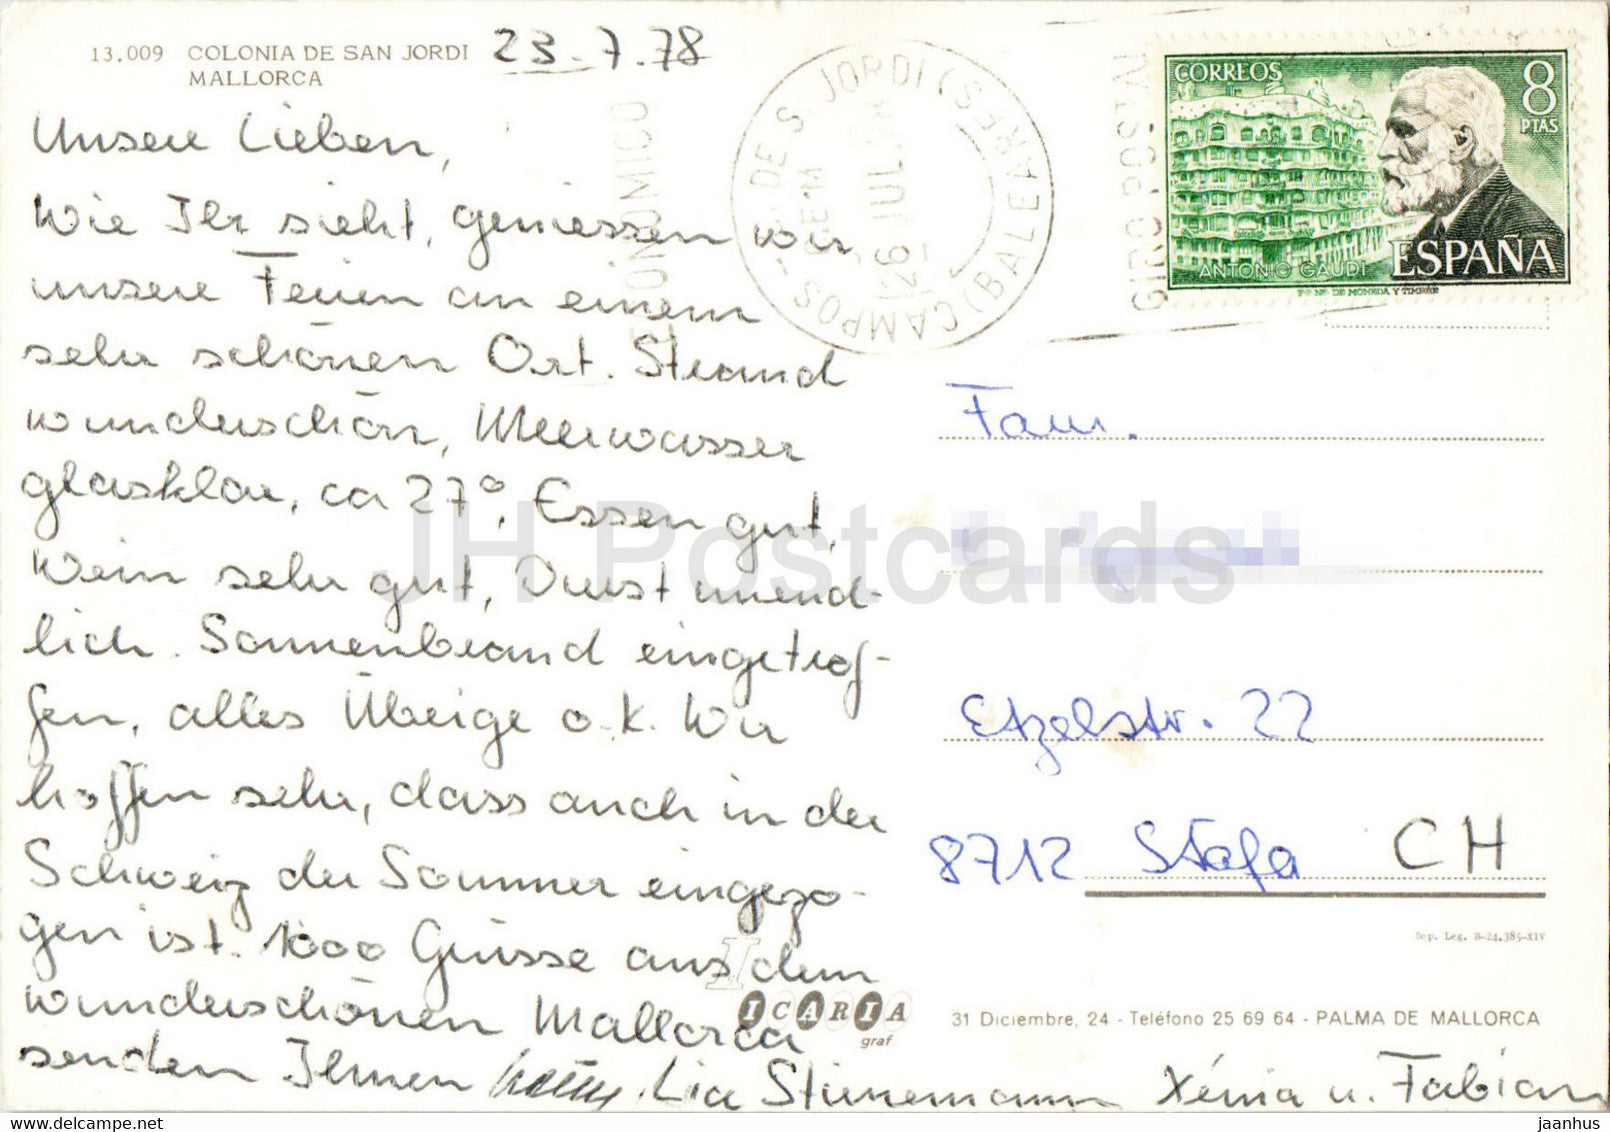 13.009 COLONIA DE SAN JORDI
MALLORCA
23.7.78
Unsere Lieben,
wie Ihr sieht, geniessen wir
unsere Ferien an einem
sehr schönen Ort. Strand
wunderschön, Meerwasser
glasklar, ca 27°, Essen gut,
Wein sehr gut, Durst unend-
lich. Sonnenbrand eingetrof-
fen, alles Übrige o.k. Wir
hoffen sehr, dass auch in der
Schweiz der Sommer eingezo-
gen ist. 1000 Grüsse aus dem
wunderschönen Mallorca
senden Ihnen
Lia Stünemann Xénia u. Fabian
CAMPOS
26 JUL. 78
(BALEARES)
GIRO POSTAL
CORREOS
8
PTAS
ANTONIO GAUDI
ESPAÑA
F.N. DE MONEDA Y TIMBRE
Fam.
Etzelstr. 22
8712 Stäfa CH
Dep. Leg. B-24.385-XIV
ICARIA
graf
31 Diciembre, 24 - Teléfono 25 69 64 - PALMA DE MALLORCA
JH Postcards
jaanhus
www.delcampe.net